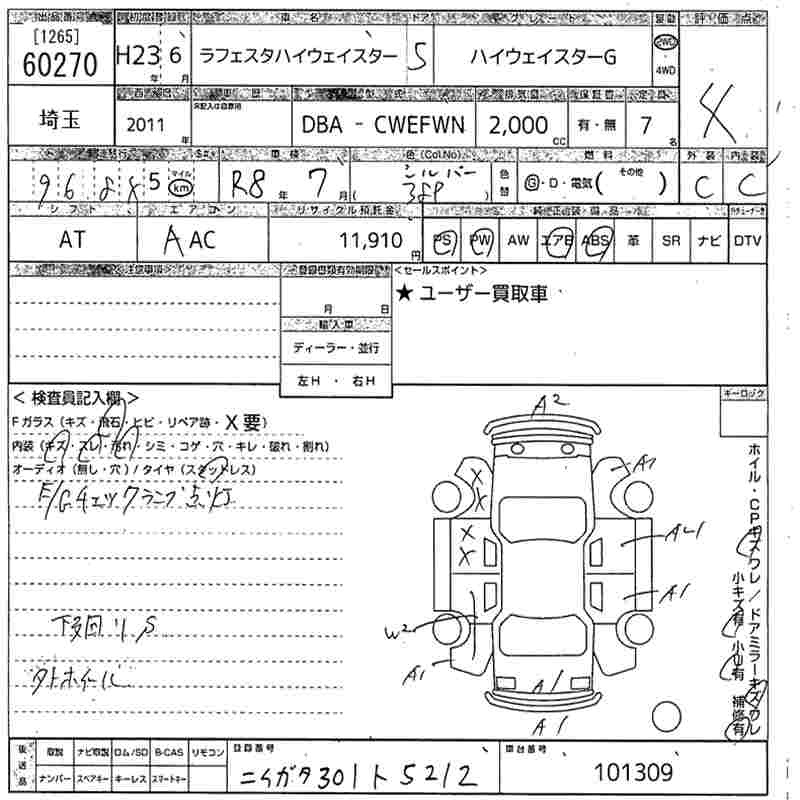 出品番号 初度登録 車名 ドア グレード 駆動 評価点
[1265]
60270
H23 年 6 月
ラフェスタハイウェイスター 5 ハイウェイスターG
2WD
4WD
4
埼玉
2011 年
車歴 型式 排気量 保証書 定員
DBA - CWEFWN
2,000 cc
有・無
7 名
車検 色(Col.No) 燃料 外装 内装
マイル
km
R8 年 7 月
シルバー
38P
色替
G・D・電気( その他 )
C C
シフト エアコン リサイクル預託金
AT
AAC
11,910 円
PS PW AW エアB ABS 革 SR ナビ DTV
注意事項
登録書類有効期限
月 日
輸入車
ディーラー・並行
左H ・ 右H
<セールスポイント>
★ ユーザー買取車
< 検査員記入欄 >
Fガラス (キズ・飛石・ヒビ・リペア跡・X要)
内装 (キズ・スレ・汚れ・シミ・コゲ・穴・キレ・破れ・割れ)
オーディオ (無し・穴) / タイヤ (スタッドレス)
E/Gチェックランプ点灯
下回りS
タトホイール
キーロック
A2
A1
X
X
X
X
AU1
A1
W2
A1
A1
A1
ホイル・CPキズワレ/ドアミラーキズワレ
小キズ有 小凹有 補修有
後送品
取説 ナビ取説 ロム/SD B-CAS リモコン
ナンバー スペアキー キーレス スマートキー
登録番号
ニイガタ301ト5212
車台番号
101309